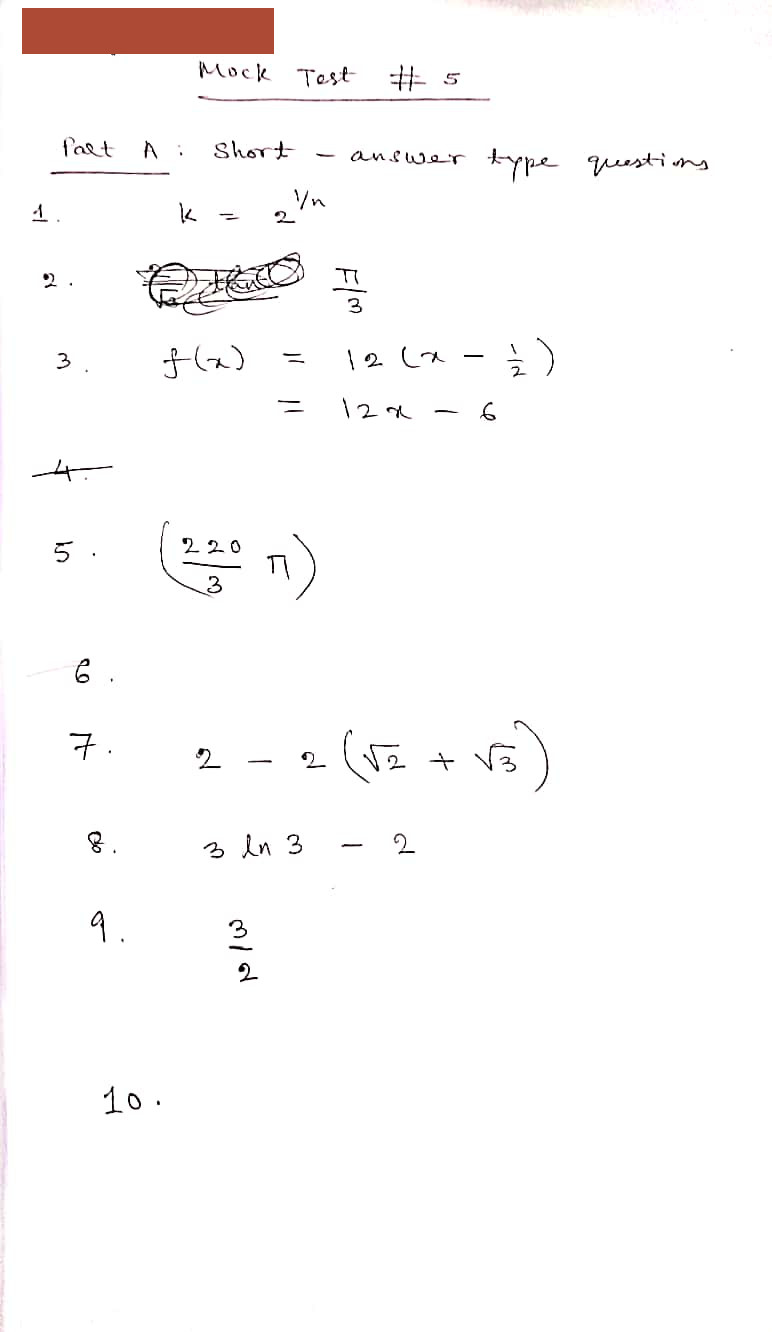 Mock Test # 5
Part A : Short - answer type questions
1. k = 2^{1/n}
2. π/3
3. f(x) = 12 (x - 1/2)
= 12x - 6
4.
5. (220/3 π)
6.
7. 2 - 2 (√2 + √3)
8. 3 ln 3 - 2
9. 3/2
10.